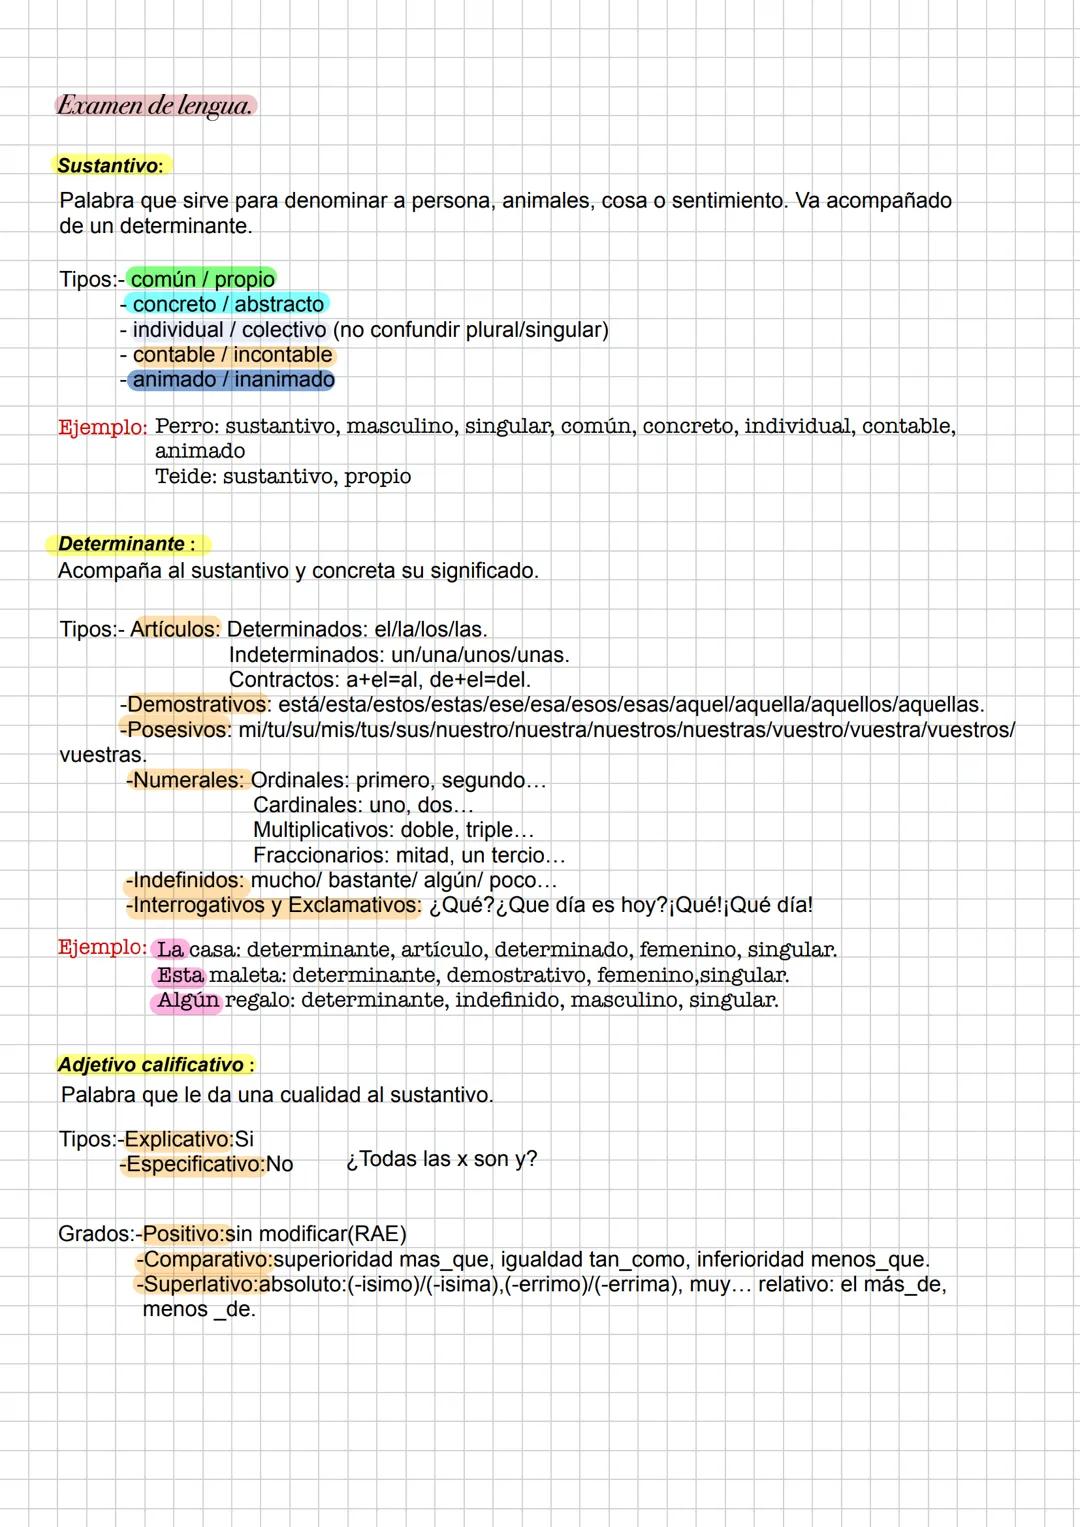 Examen de lengua.
Sustantivo:
Palabra que sirve para denominar a persona, animales, cosa o sentimiento. Va acompañado
de un determinante.
Tipos:- común / propio
- concreto / abstracto
- individual / colectivo (no confundir plural/singular)
- contable / incontable
- animado / inanimado
Ejemplo: Perro: sustantivo, masculino, singular, común, concreto, individual, contable,
animado
Teide: sustantivo, propio
Determinante :
Acompaña al sustantivo y concreta su significado.
Tipos:- Artículos: Determinados: el/la/los/las.
Indeterminados: un/una/unos/unas.
Contractos: a+el=al, de+el=del.
-Demostrativos: está/esta/estos/estas/ese/esa/esos/esas/aquel/aquella/aquellos/aquellas.
-Posesivos: mi/tu/su/mis/tus/sus/nuestro/nuestra/nuestros/nuestras/vuestro/vuestra/vuestros/
vuestras.
-Numerales: Ordinales: primero, segundo…
Cardinales: uno, dos…
Multiplicativos: doble, triple…
Fraccionarios: mitad, un tercio…
-Indefinidos: mucho/ bastante/ algún/ poco…
-Interrogativos y Exclamativos: ¿Qué?¿Que día es hoy?¡Qué!¡Qué día!
Ejemplo: La casa: determinante, artículo, determinado, femenino, singular.
Esta maleta: determinante, demostrativo, femenino,singular.
Algún regalo: determinante, indefinido, masculino, singular.
Adjetivo calificativo :
Palabra que le da una cualidad al sustantivo.
Tipos:-Explicativo:Si
-Especificativo:No ¿Todas las x son y?
Grados:-Positivo:sin modificar(RAE)
-Comparativo:superioridad mas_que, igualdad tan_como, inferioridad menos_que.
-Superlativo:absoluto:(-isimo)/(-isima),(-errimo)/(-errima), muy… relativo: el más_de,
menos _de.